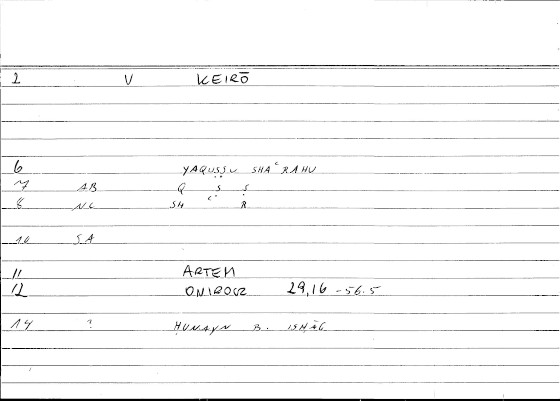 2 V KEIRŌ
6 YAQUṢṢU SHAʿRAHU
7 AB Q Ṣ Ṣ
8 NC SH ʿ R
10 SA
11 ARTEM
12 ONIROCR 29,16 -56.5
14 ? ḤUNAYN B. ISḤĀQ